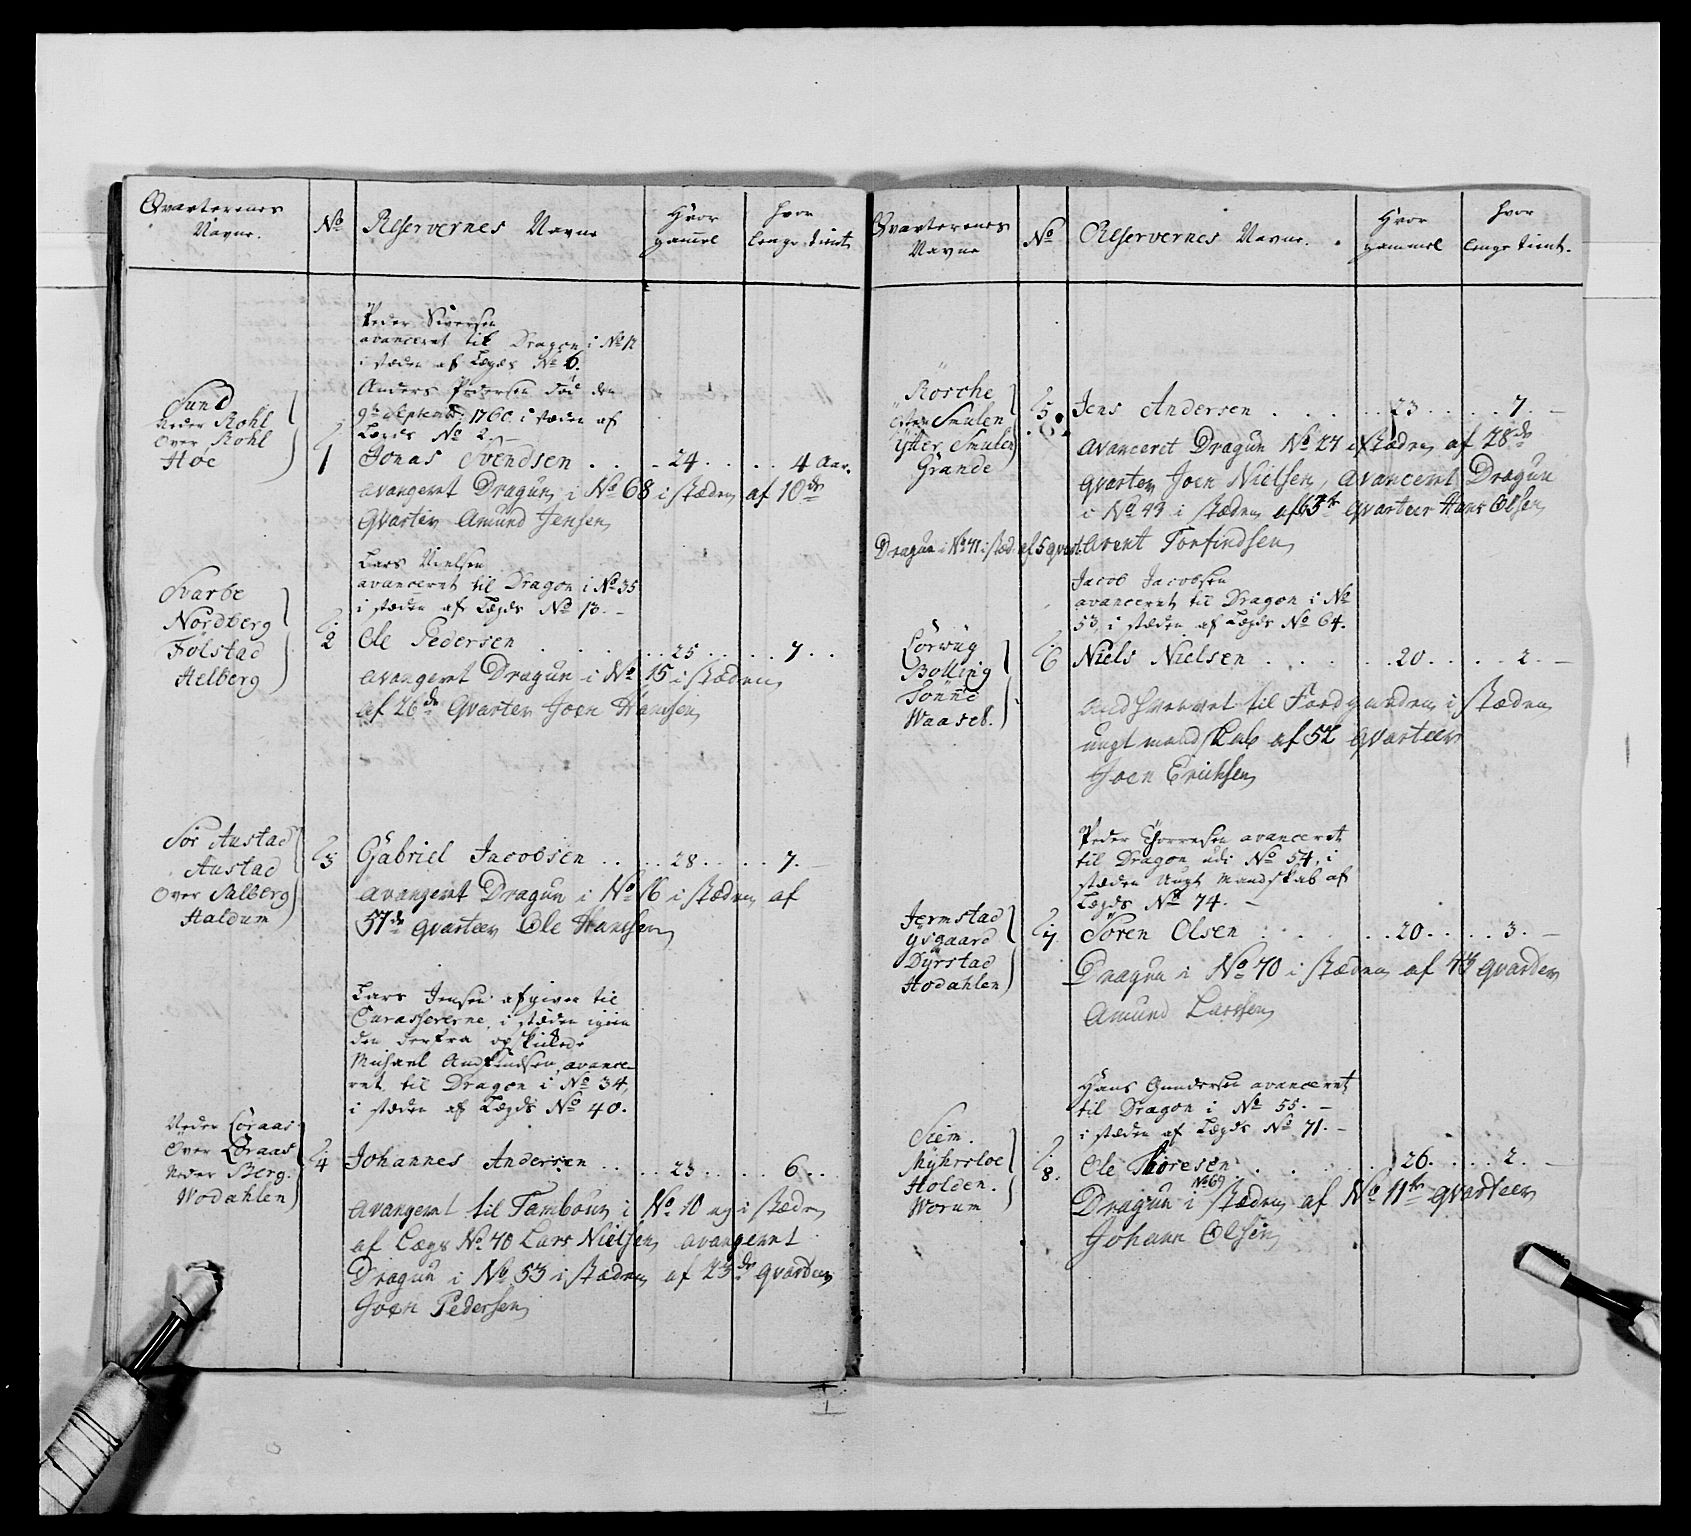 Qvarterenes
Navne.
No
Reservernes Navne
Hvor
gammel
hvor
lenge tient
Peder Siversen
avanceret til Dragon i No 12
i stæden af Lægds No 6.
Anders Pedersen Fød den
9de Septembr 1760. i stæden af
Lægds No 2. –
Sund
Neder Rohl
Over Rohl
Hoe
1
Jonas Svendsen . . . 24 . . . . 4 Aar.
avangeret Dragun i No 68 i stæden af 10de
Qvarter Amund Jensen
Lars Nielsen
avanceret til Dragon i No 35
i stæden af Lægds No 13. –
Svarbe
Nordberg
Følstad
Helberg
2
Ole Pedersen . . . . 25 . . . . 7 . .
avangeret Dragun i No 15 i stæden
af 26de Qvarter Joen Hansen
Sør Austad
Austad
Over Salberg
Haldum
3
Gabriel Jacobsen . . . . 28 . . . . 7.
avangeret Dragun i No 16 i stæden af
57de qvarteer Ole Hansen
Lars Jensen afgiven til
Curassererne, i stæden igien
den derfra
Michael avance-
ret til Dragon i No 34,
i stæden af Lægds No 40.
Neder Løraas
Over Løraas
Neder Berg.
Wodahlen
4
Johannes Andersen . . . . 23 . . . . 6 . .
avangeret til Tambour i No 10 og i stæden
af Lægs No 40 Lars Nielsen avangeret
Dragun i No 53 i stæden af 23de qvarteer
Joen Pedersen
Qvarterenes
Navne
No
Reservernes Navne.
Hvor
gammel
hvor
lenge tient.
Rosche
Øster Smulen
Ytter Smulen
Grande
5
Jens Andersen . . . . . 23 . . . . 7. –
avanceret Dragun No 27 i stæden af 28de
qvarter Joen Nielsen, avanceret Dragun
i No 43 i stæden af 65te qvarteer Hans Olsen
Dragun i No 71 i stæd af 5 qvart. Arent Torfindsen
Jacob Jacobsen
avanceret til Dragon i No
53, i stæden af Lægds No 64.
Lorvug
Bolling
Tønne
Waaset.
6
Niels Nielsen . . . . . 20 . . . . 2. –
til i stæden
ungt mandskab af 52 qvarteer
Joen Erichsen
Peder avanceret
til Dragon udi No 54, i
stæden Ungt Mandskab af
Lægds No 74. –
Jermstad
Ysgaard
Dyrstad
Hodahlen
7
Søren Olsen . . . . . 20 . . . . 3. –
Dragun i No 70 i stæden af 43 qvarteer
Amund Larssen
Hans Gundersen avanceret
til Dragon i No 55. –
i stæden af Lægds No 71. –
Siem.
Myhrsloe
Holden.
Worum
8.
Ole Thoresen . . . . . 26. . . . 2. –
No 69
Dragun i stæden af No 11te qvarteer
Johann Olsen